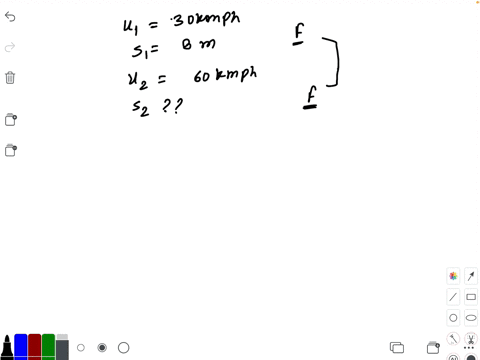 u₁ = 30kmph
F
s₁ = 8 m
u₂ = 60 kmph
F
s₂ ??